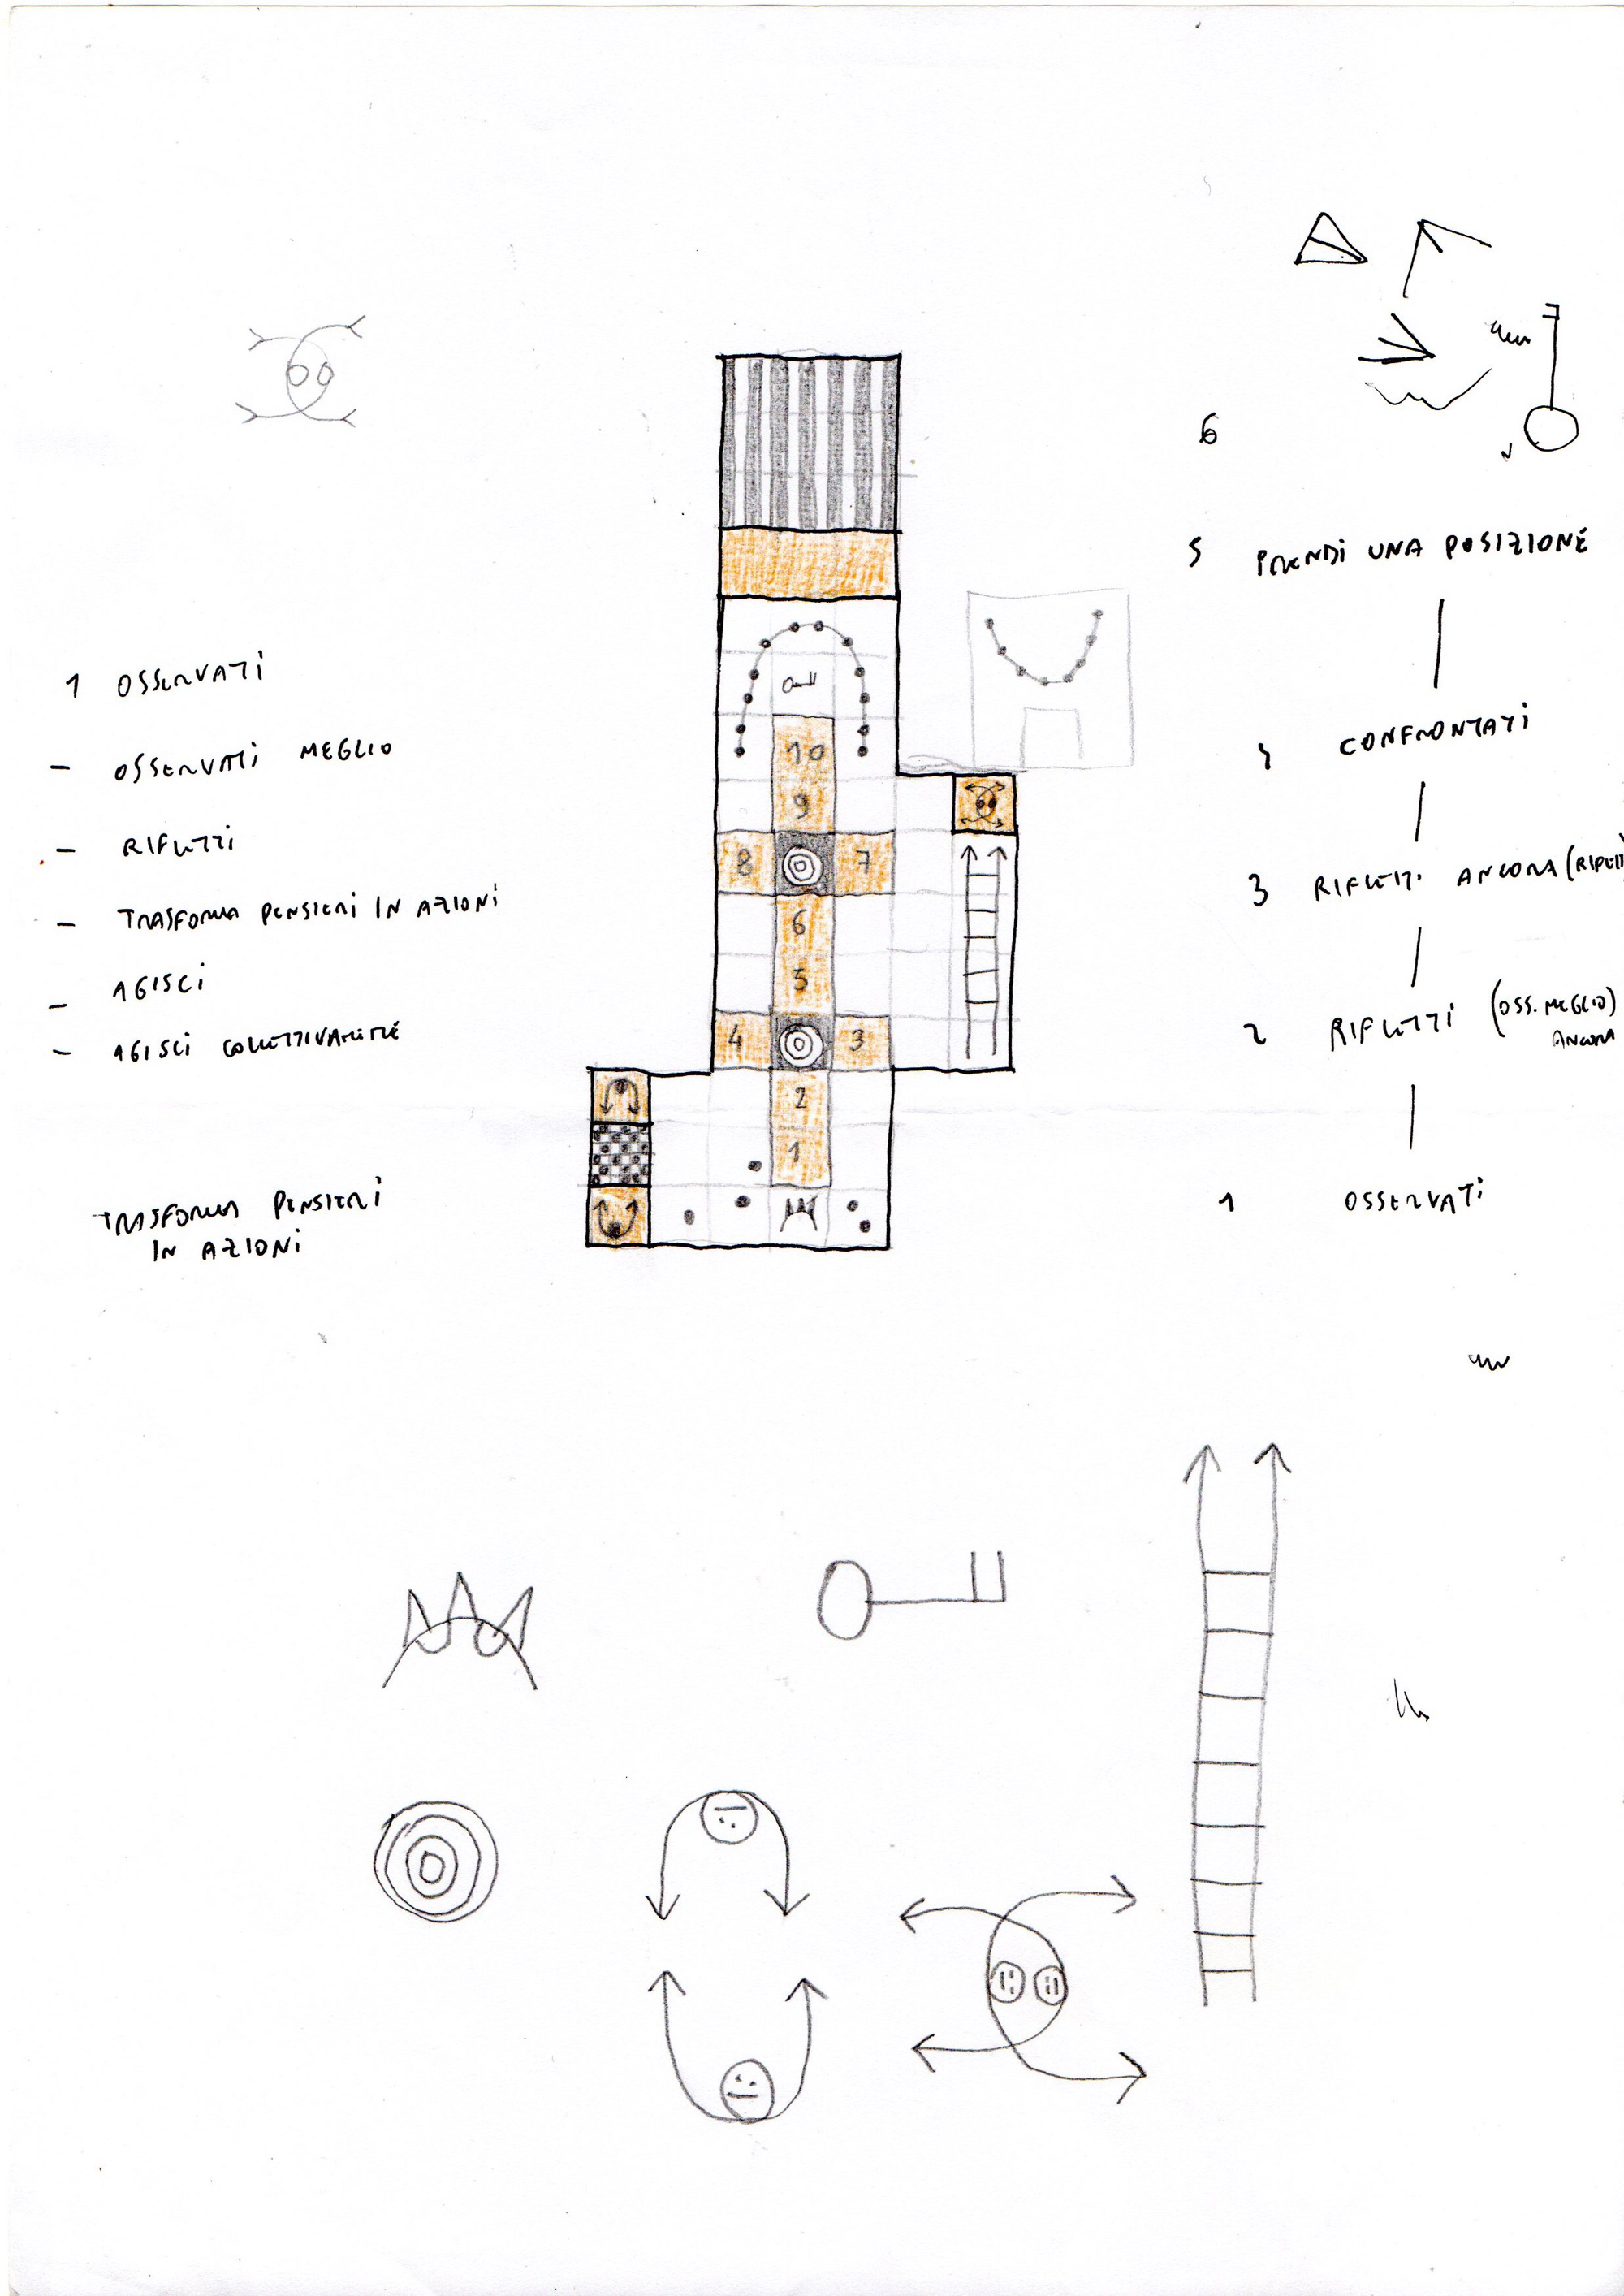 1 OSSERVATI
- OSSERVATI MEGLIO
- RIFLETTI
- TRASFORMA PENSIERI IN AZIONI
- AGISCI
- AGISCI COLLETTIVAMENTE
TRASFORMA PENSIERI
IN AZIONI
10
9
8 7
6
5
4 3
2
1
6
5 PRENDI UNA POSIZIONE
4 CONFRONTATI
3 RIFLETTI ANCORA
2 RIFLETTI (OSS. MEGLIO)
ANCORA
1 OSSERVATI